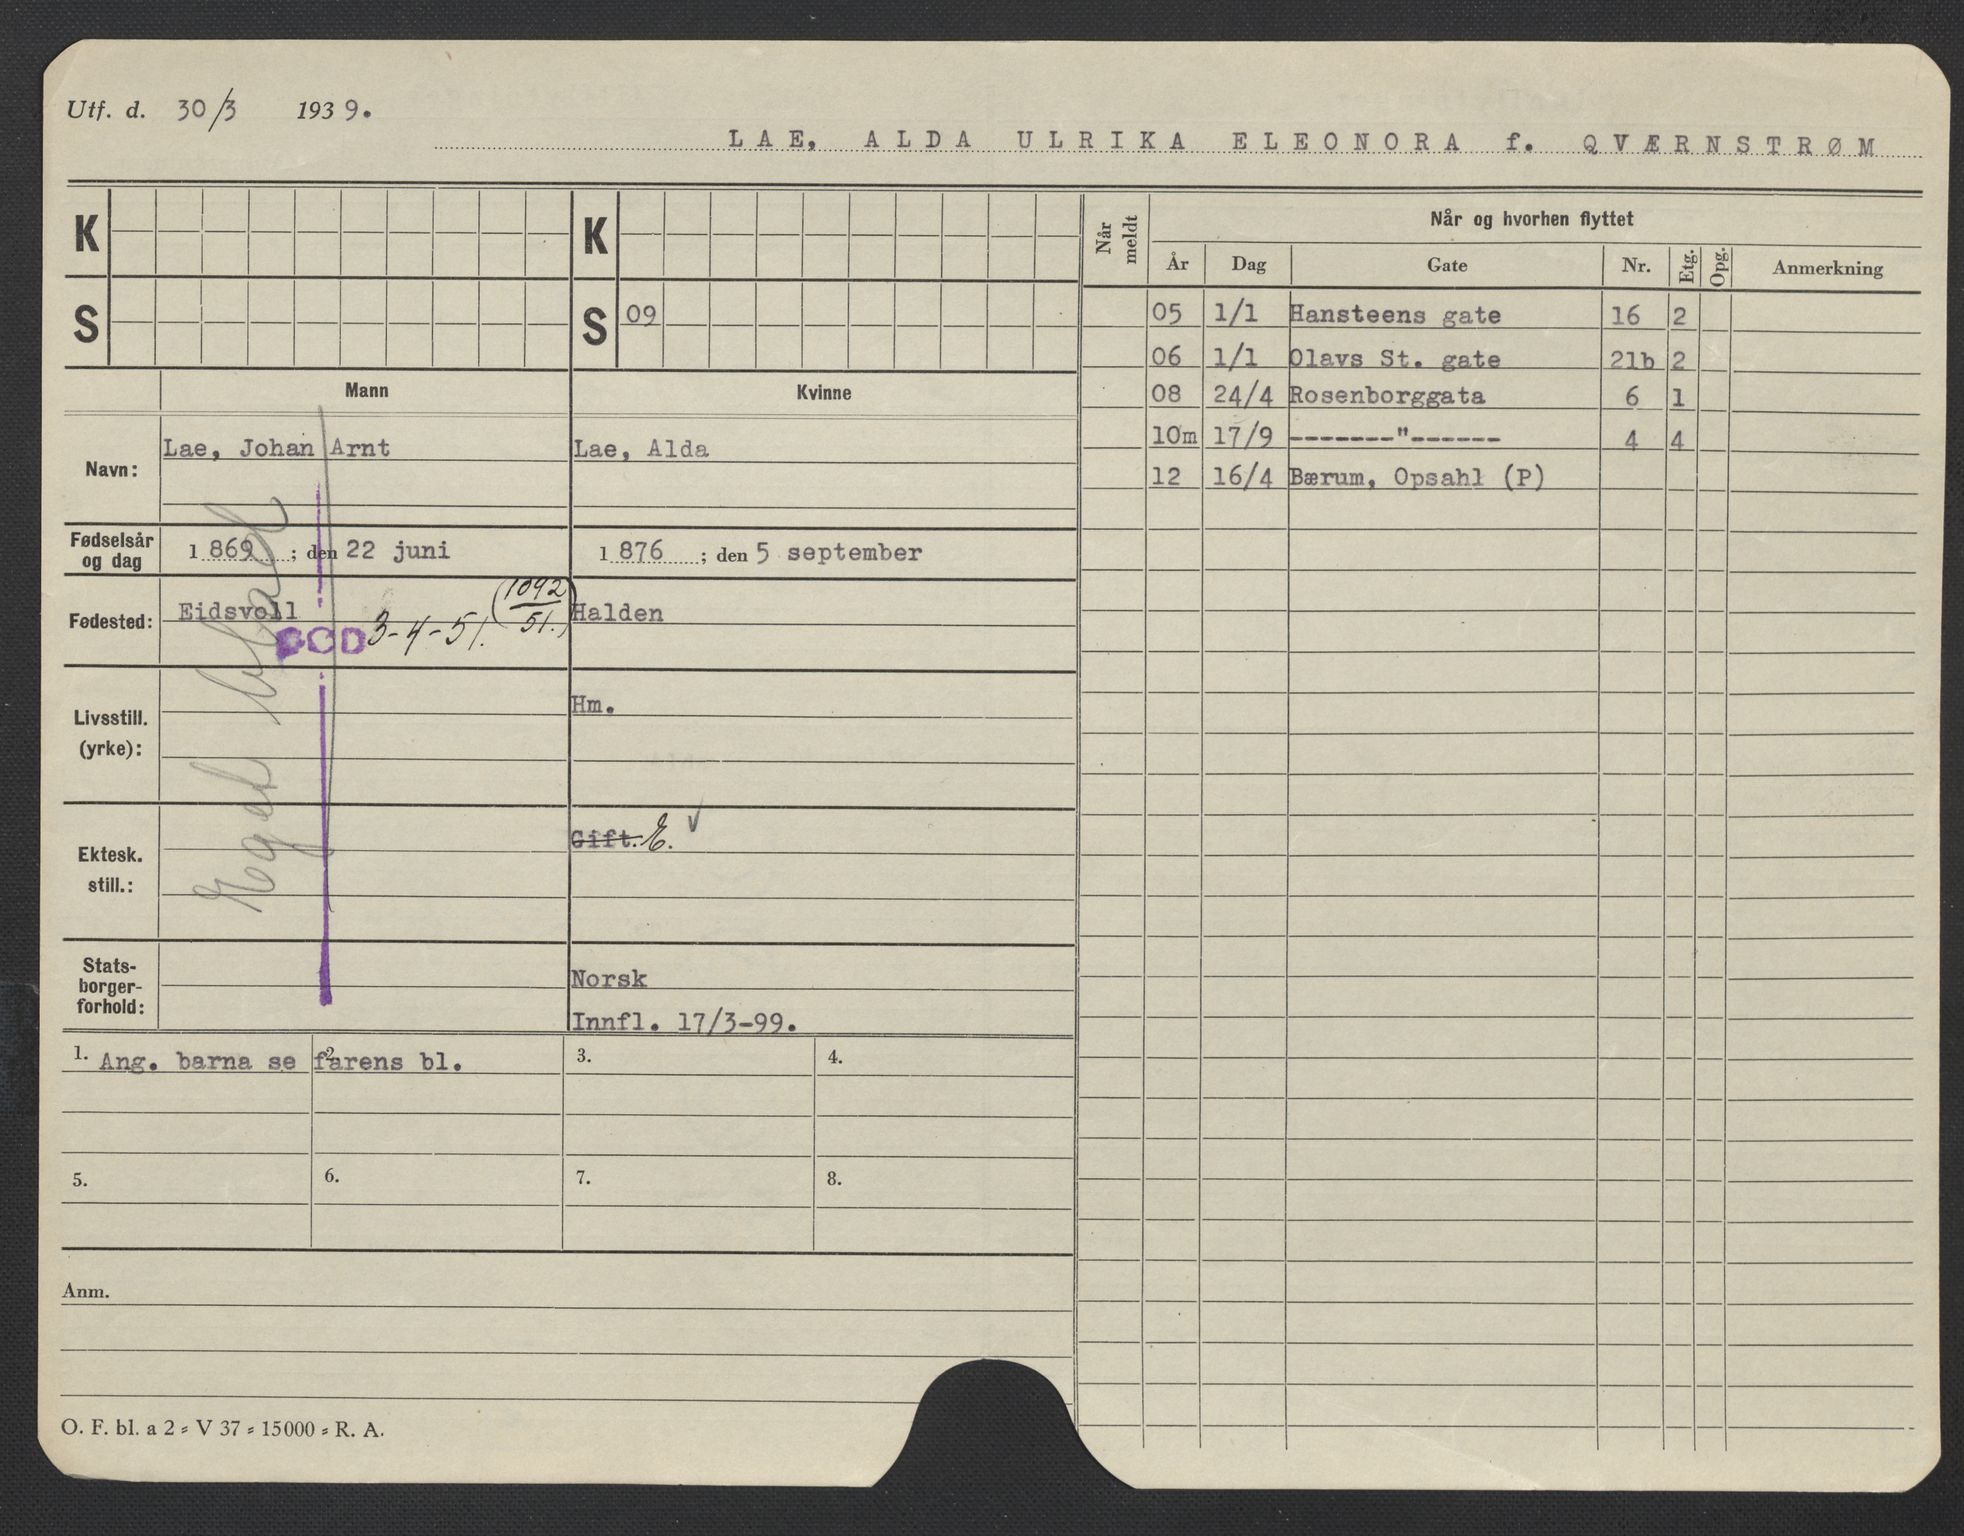 Utf. d. 30/3 1939.
LAE, ALDA ULRIKA ELEONORA f. QVÆRNSTRØM
K K
S S 09
Mann Kvinne
Navn: Lae, Johan Arnt Lae, Alda
Fødselsår og dag 1 869 ; den 22 juni 1 876 ; den 5 september
Fødested: Eidsvoll Halden
DØD 3-4-51. (1092/51.)
Livsstill. (yrke): Hm.
Eget blad
Ektesk. still.: Gift. E. ✓
Stats-borger-forhold: Norsk
Innfl. 17/3-99.
1. Ang. barna se farens bl. 2. 3. 4.
5. 6. 7. 8.
Anm.
O. F. bl. a 2 - V 37 - 15000 - R. A.
Når meldt Når og hvorhen flyttet
År Dag Gate Nr. Etg. Opg. Anmerkning
05 1/1 Hansteens gate 16 2
06 1/1 Olavs St. gate 21b 2
08 24/4 Rosenborggata 6 1
10m 17/9 -------"------ 4 4
12 16/4 Bærum, Opsahl (P)